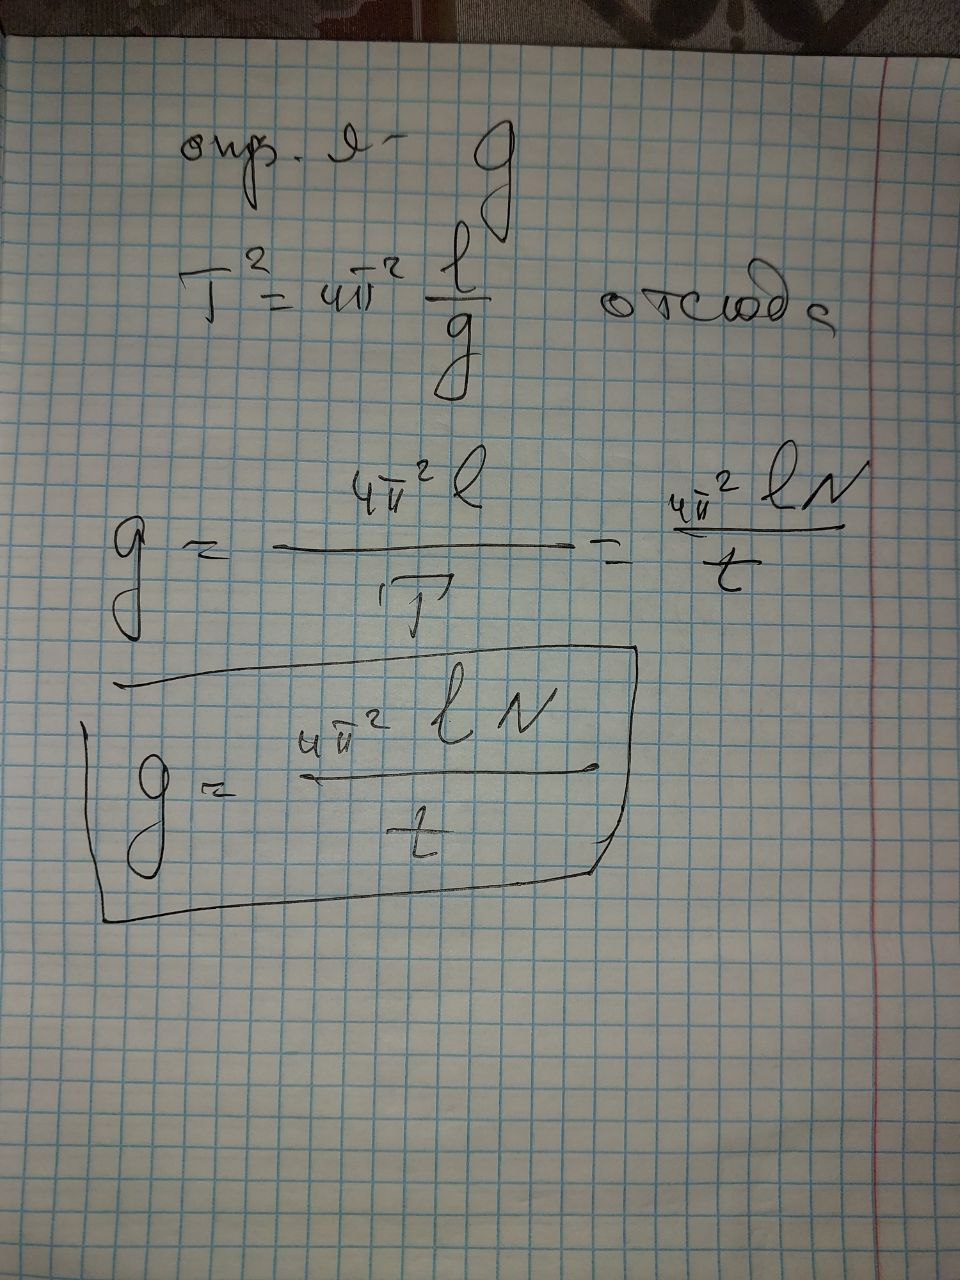 опр. я - g
T² = 4π² l/g отсюда
g = 4π² l / T = 4π² l N / t
g = 4π² l N / t